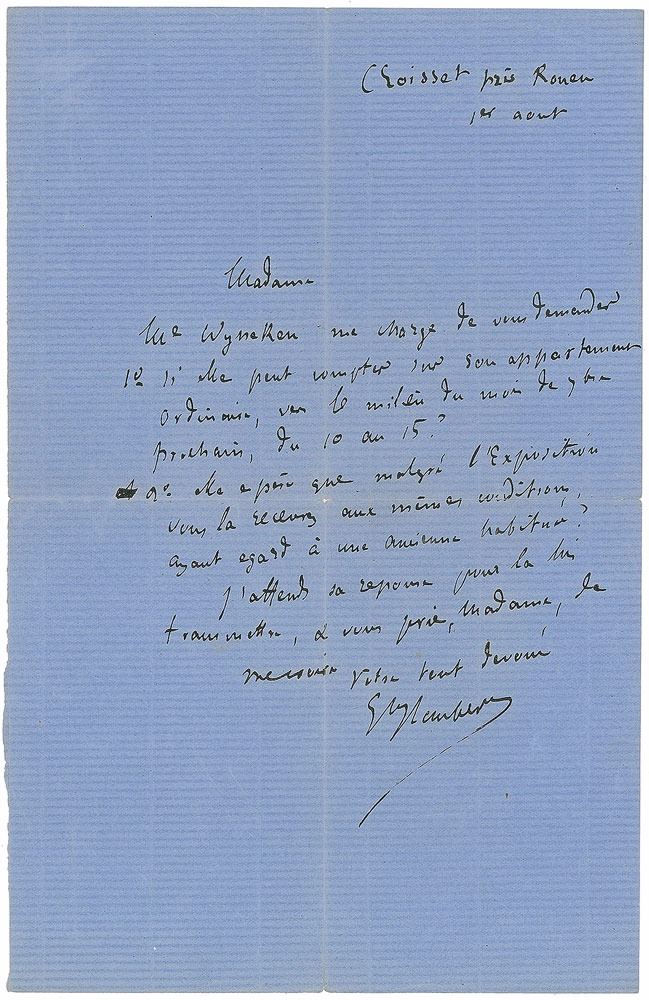 Croisset près Rouen
1er aout
Madame
Me Wyneken me charge de vous demander
1º si elle peut compter sur son appartement
ordinaire, vers le milieu du mois de 7bre
prochain, du 10 au 15.?
2º elle espère que malgré l'Exposition
vous la recevrez aux mêmes conditions,
ayant egard à une ancienne habituée?
J'attends sa reponse pour la lui
transmettre, & vous prie, Madame, de
me croire votre tout devoué
Gve Flaubert